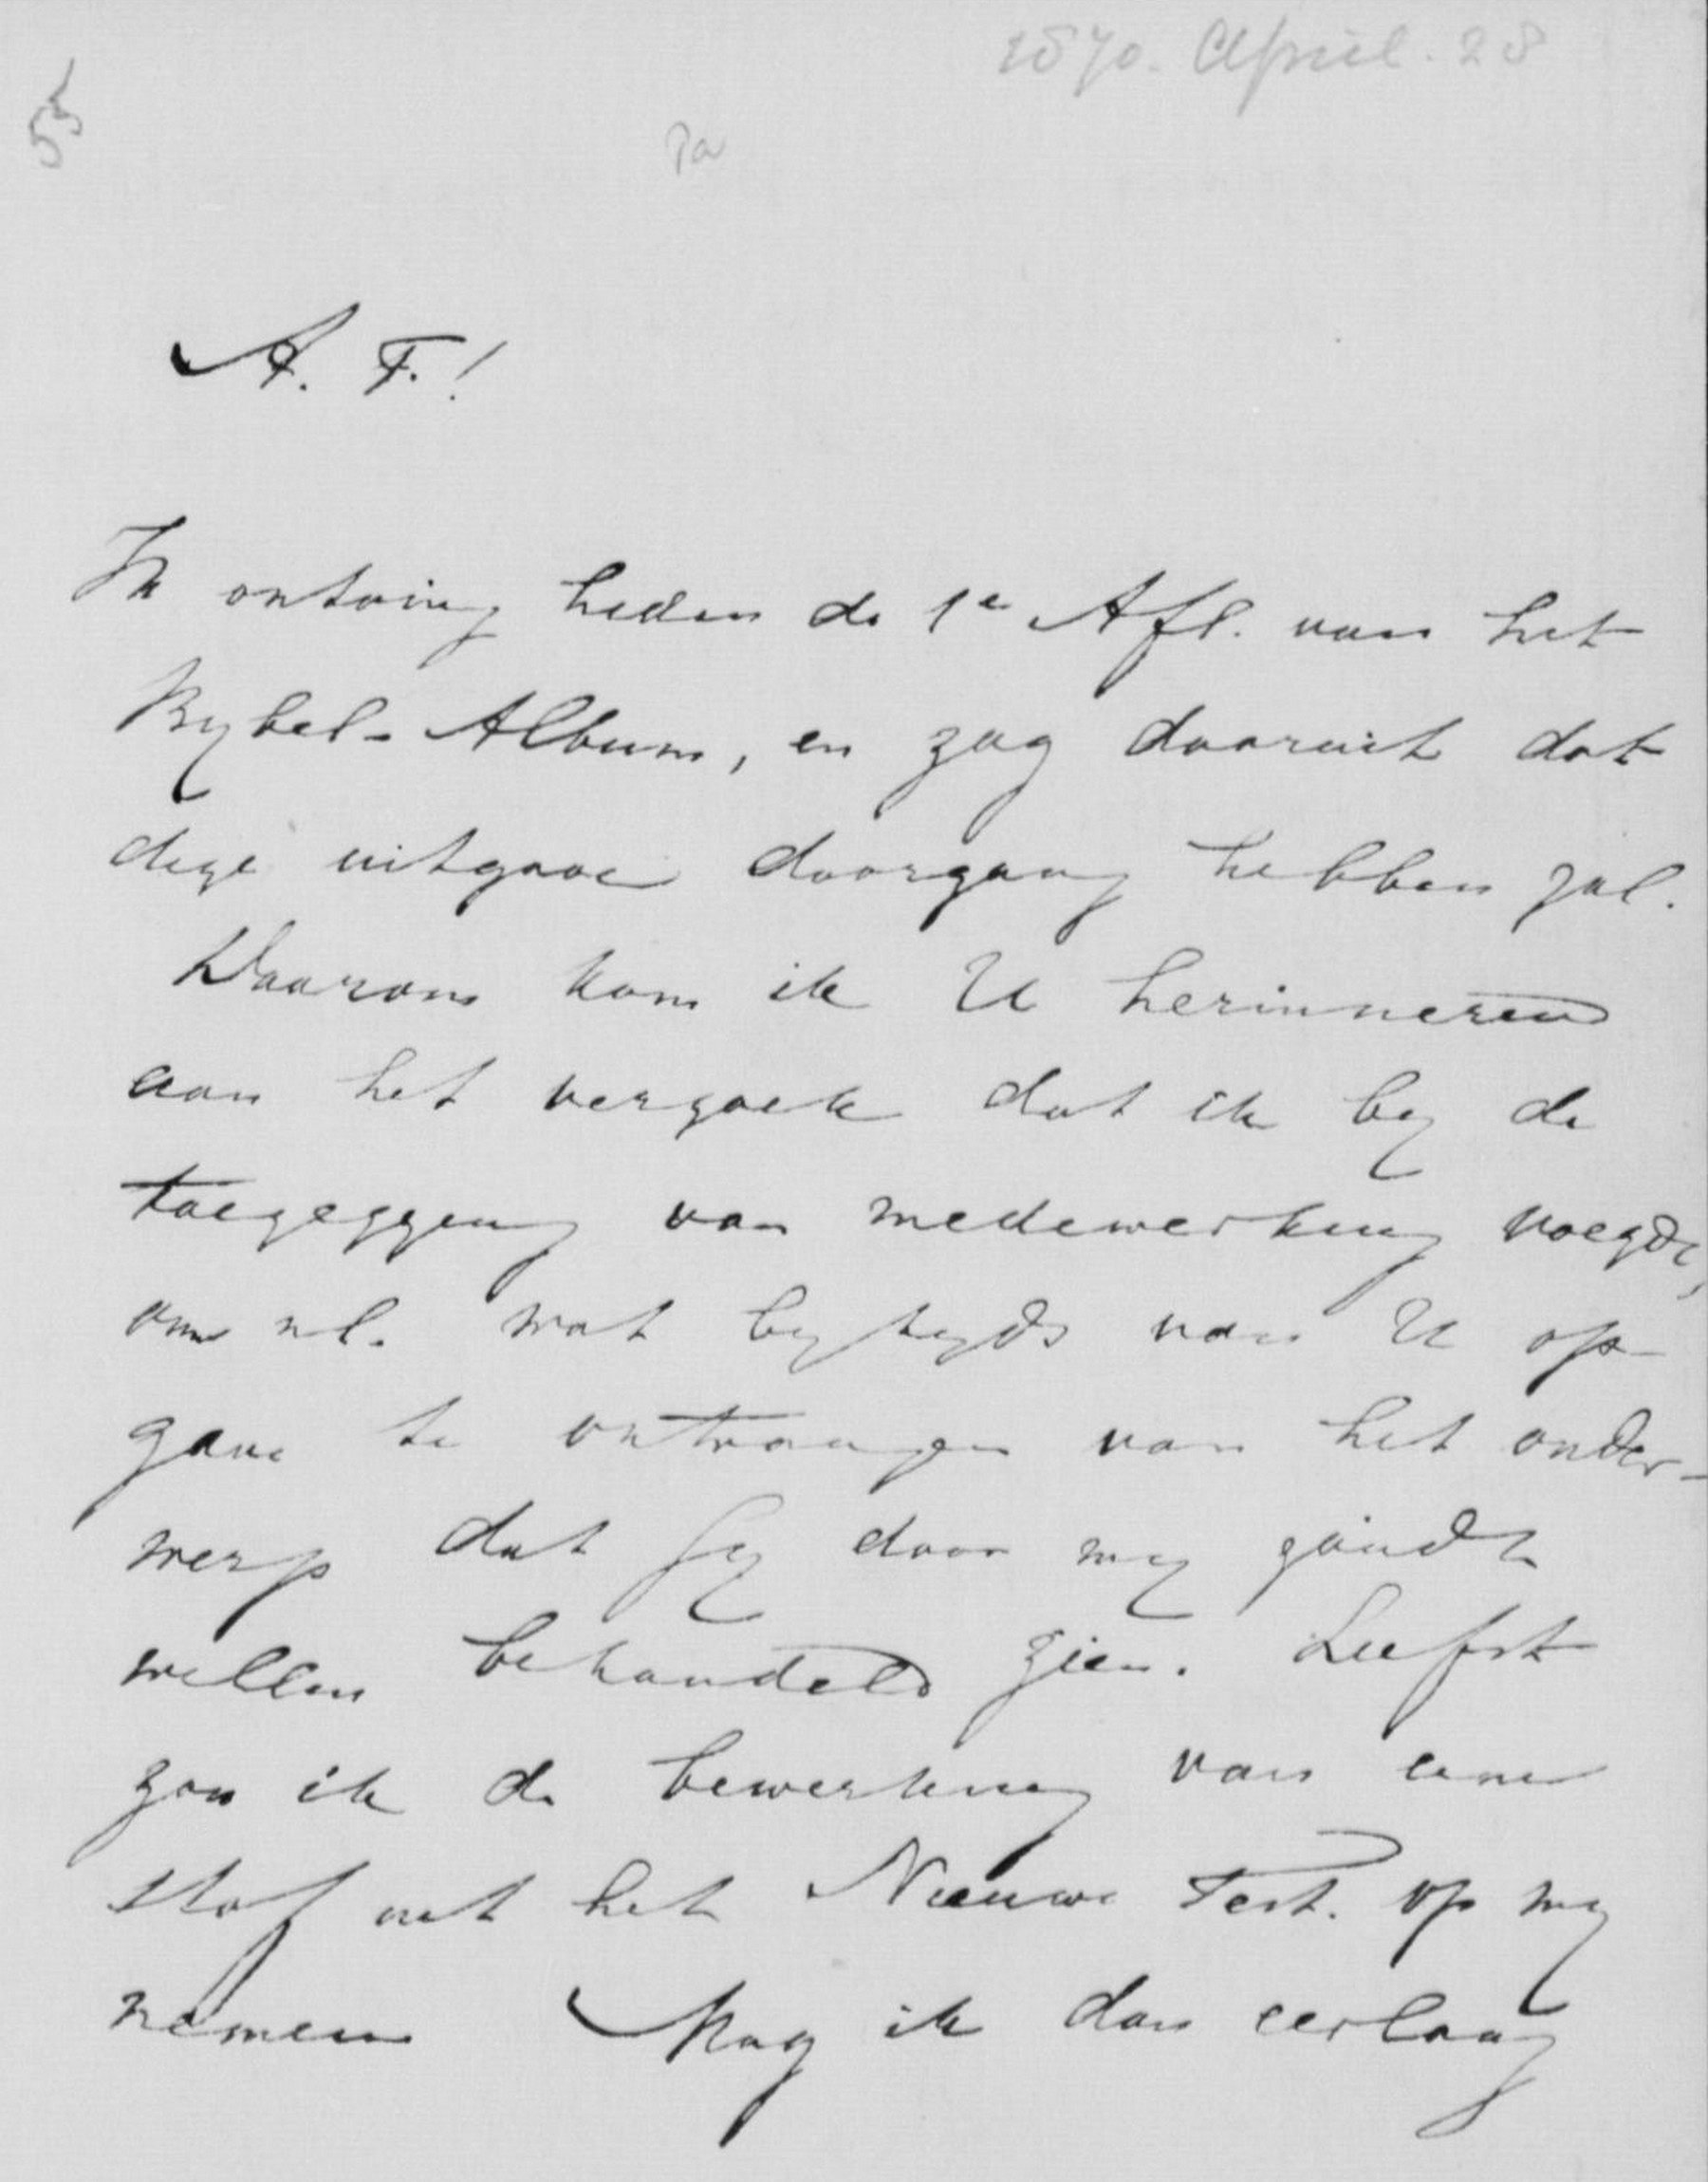 1870. April. 28
55
Pa
A. F.!
Ik ontving heden de 1e Afl. van het
Bybel-Album, en zag daaruit dat
deze uitgave doorgang hebben zal.
Daarom kom ik U herinneren
aan het verzoek dat ik by de
toezegging van medewerking voegde,
om nl. wat bytyds van U op-
gave te ontvangen van het onder-
werp dat gy door my zoudt
willen behandeld zien. Liefst
zou ik de bewerking van eene
stof uit het Nieuwe Test. op my
nemen Mag ik dan eerlang